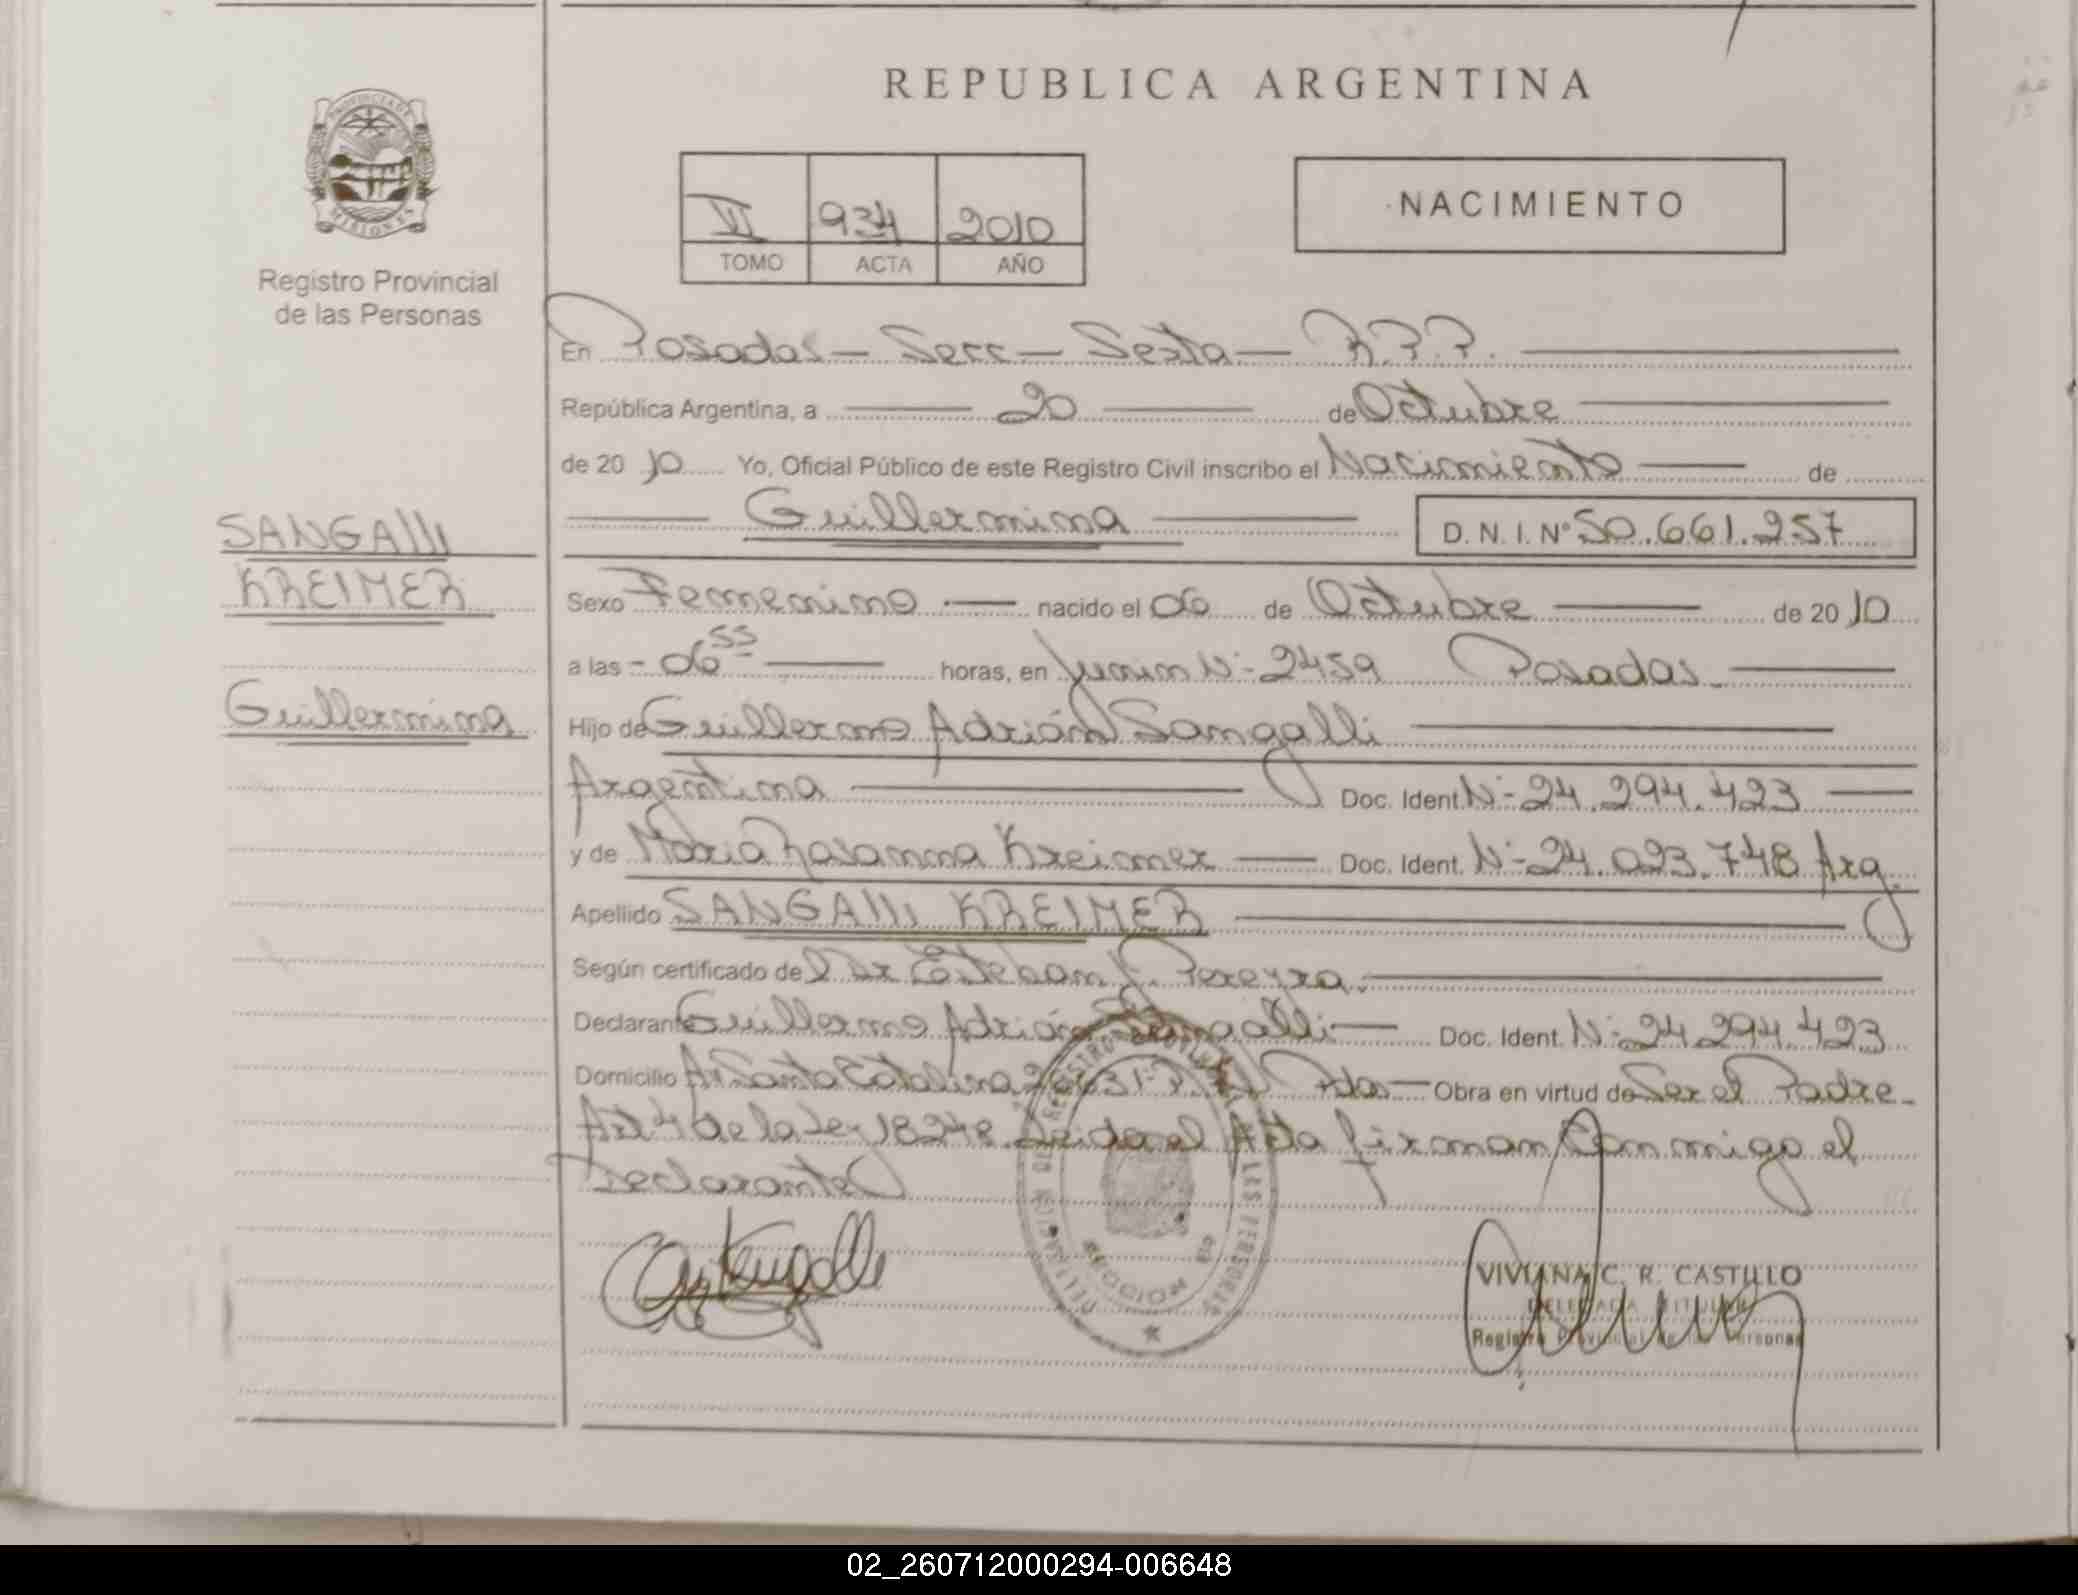 REPUBLICA ARGENTINA
PROVINCIA DE MISIONES
Registro Provincial
de las Personas
VI 934 2010
TOMO ACTA AÑO
NACIMIENTO
En Posadas - Secc - Sexta - R.P.P.
República Argentina, a 20 de Octubre
de 2010 Yo, Oficial Público de este Registro Civil inscribo el Nacimiento de
Guillermina D. N. I. Nº 50.661.257
SANGAlli
KREIMER
Guillermina
Sexo Femenino nacido el 06 de Octubre de 2010
a las - 06 55 horas, en Junin Nº 2459 Posadas
Hijo de Guillermo Adrián Sangalli
Argentina Doc. Ident. Nº 24.294.423
y de María Rosanna Kreimer Doc. Ident. Nº 24.023.748 Arg.
Apellido SANGAlli KREIMER
Según certificado de Dr Esteban J. Pereyra.
Declarante Guillermo Adrián Sangalli Doc. Ident. Nº 24.294.423
Domicilio Av Santa Catalina Pdas - Obra en virtud de Ser el Padre -
Art 4 de la Ley 18248. Leida el Acta firman Conmigo el
Declarante
REGISTRO PROVINCIAL DE LAS PERSONAS
SECCION 6ta
VIVIANA C. R. CASTILLO
DELEGADA TITULAR
Registro Provincial de las Personas
02_260712000294-006648